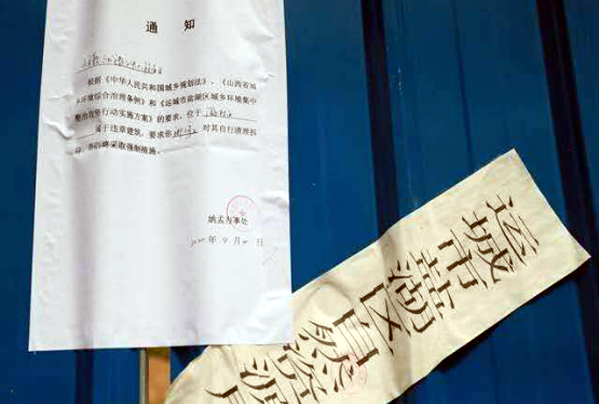 通知
根据《中华人民共和国城乡规划法》、《山西省城
乡环境综合治理条例》和《运城市盐湖区城乡环境集中
整治攻坚行动实施方案》的要求，位于
属于违章建筑，要求你 对其自行清理拆
除，否则将采取强制措施。
姚孟办事处
2020年9月 日
运城市盐湖区自
然资源局